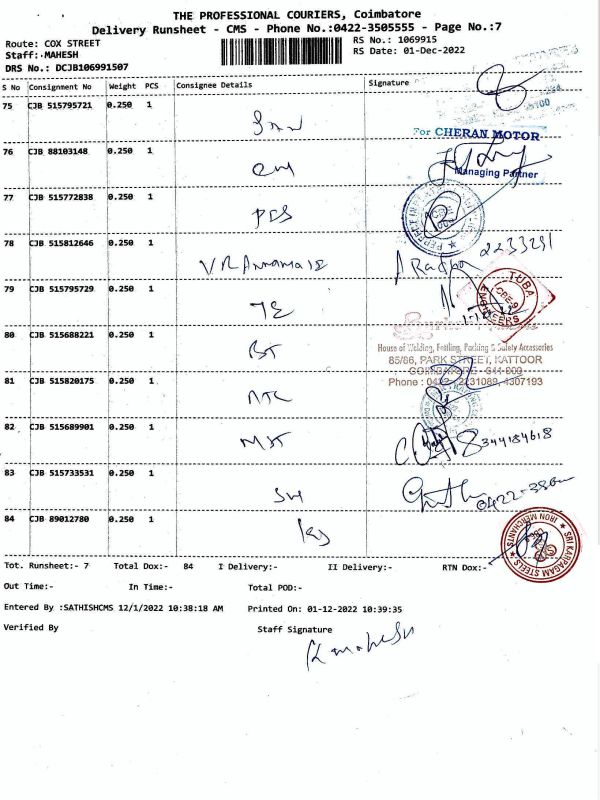 THE PROFESSIONAL COURIERS, Coimbatore
Delivery Runsheet - CMS - Phone No.:0422-3505555 - Page No.:7
Route: COX STREET
RS No.: 1069915
Staff:-MAHESH
RS Date: 01-Dec-2022
DRS No.: DCJB106991507
S No Consignment No Weight PCS Consignee Details Signature
75 CJB 515795721 0.250 1
For CHERAN MOTOR
76 CJB 88103148 0.250 1
Managing Partner
77 CJB 515772838 0.250 1
78 CJB 515812646 0.250 1 2233291
79 CJB 515795729 0.250 1 TE
TUBA ENGINEERS
80 CJB 515688221 0.250 1 BT
House of Welding, Fettling, Packing & Safety Accessories
85/86, PARK STREET, KATTOOR
COIMBATORE - 641 009
Phone : 0422 - 2231089, 4307193
81 CJB 515820175 0.250 1
82 CJB 515689901 0.250 1 8344184618
83 CJB 515733531 0.250 1 SH
84 CJB 89012780 0.250 1
SRI KARPAGAM STEELS
IRON MERCHANTS
Tot. Runsheet:- 7 Total Dox:- 84 I Delivery:- II Delivery:- RTN Dox:-
Out Time:- In Time:- Total POD:-
Entered By :SATHISHCMS 12/1/2022 10:38:18 AM Printed On: 01-12-2022 10:39:35
Verified By Staff Signature
K mahesh